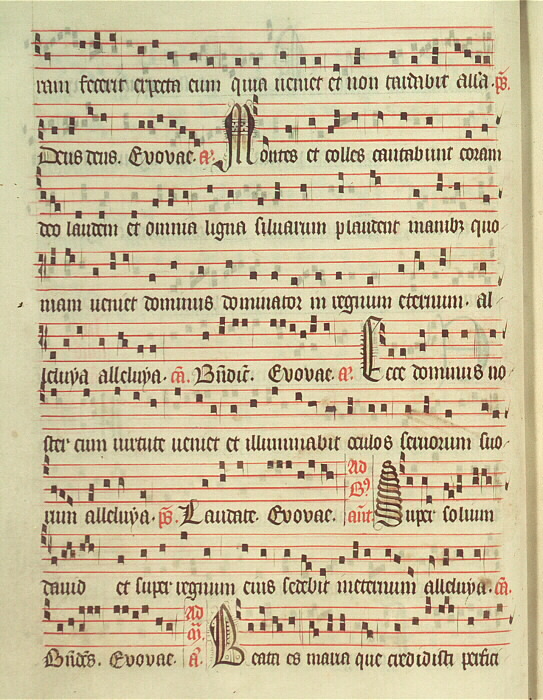 ram fecerit expecta eum quia ueniet et non tardabit alla. ps.
Deus deus. Evovae. a. Montes et colles cantabunt coram
deo laudem et omnia ligna siluarum plaudent manibz quo
niam ueniet dominus dominator in regnum eternum. al
leluya alleluya. ca. Bndict. Evovae. a. Ecce dominus no
ster cum uirtute ueniet et illuminabit oculos seruorum suo
rum alleluya. ps. Laudate. Evovae. Ad B9 ant. Super solium
dauid et super regnum eius sedebit ineternum alleluya. ca.
Bndcs. Evovae. Ad m. a. Beata es maria que credidisti perfici